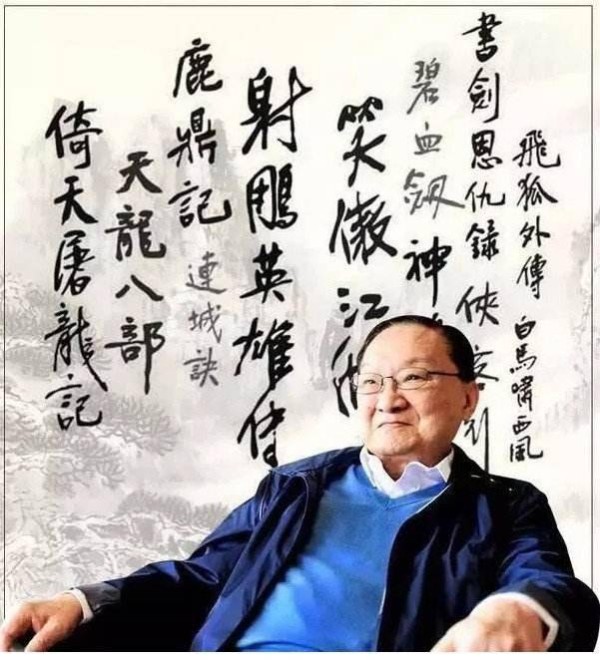 飛狐外傳
白馬嘯西風
書劍恩仇錄
俠客
碧血劍
神
笑傲江湖
射鵰英雄傳
鹿鼎記
連城訣
天龍八部
倚天屠龍記